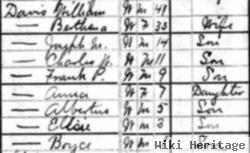 Davis William W M 41
— Berthena W F 33 Wife
— Joseph M. W M 14 Son
— Charles W. W M 11 Son
— Frank P. W M 9 Son
— Anna W F 7 Daughter
— Albertus W M 5 Son
— Elsie W M 3 Son
— Boyce W M
Wiki Heritage